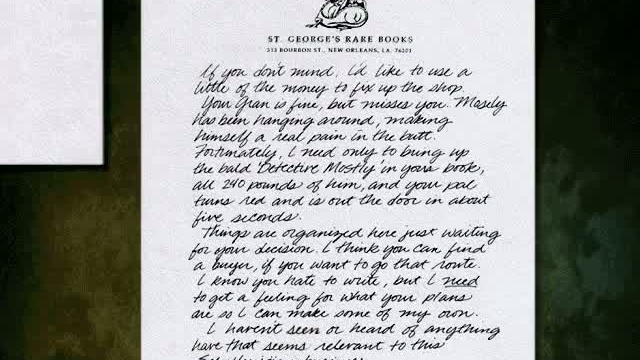 ST. GEORGE'S RARE BOOKS
313 BOURBON ST., NEW ORLEANS, LA. 76201
If you don't mind, I'd like to use a
little of the money to fix up the shop.
Your Gran is fine, but misses you. Mosely
has been hanging around, making
himself a real pain in the butt.
Fortunately, I need only to bring up
the bald 'Detective Mostly' in yours book,
all 240 pounds of him, and your pal
turns red and is out the door in about
five seconds.
Things are organized here just waiting
for your decision. I think you can find
a buyer, if you want to go that route.
I know you hate to write, but I need
to get a feeling for what your plans
are so I can make some of my own.
I haven't seen or heard of anything
have that seems relevant to this